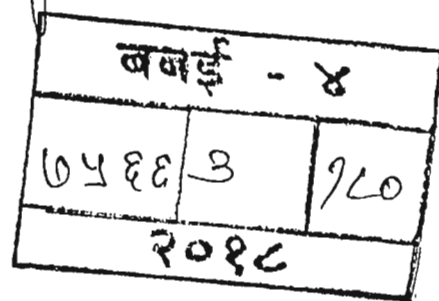 बबई - ४
७५६६ ३ १८०
२०१८